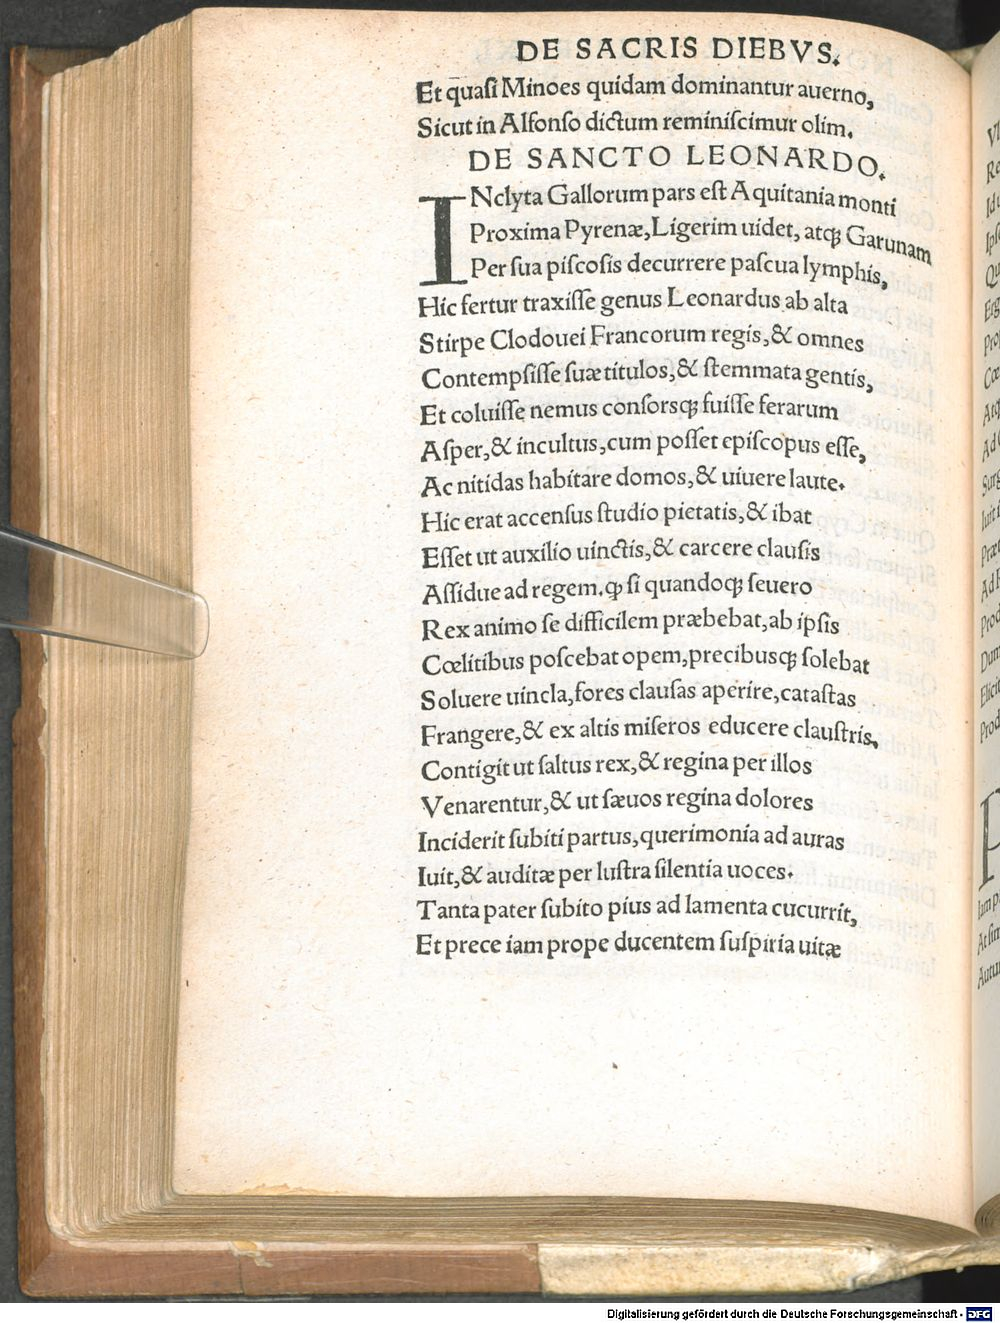 DE SACRIS DIEBVS.
Et quaſi Minoes quidam dominantur auerno,
Sicut in Alfonſo dictum reminiſcimur olim.
DE SANCTO LEONARDO.
INclyta Gallorum pars eſt Aquitania monti
Proxima Pyrenæ, Ligerim uidet, atqꝫ Garunam
Per ſua piſcoſis decurrere paſcua lymphis,
Hic fertur traxiſſe genus Leonardus ab alta
Stirpe Clodouei Francorum regis, & omnes
Contempſiſſe ſuæ titulos, & ſtemmata gentis,
Et coluiſſe nemus conſorsqꝫ fuiſſe ferarum
Aſper, & incultus, cum poſſet epiſcopus eſſe,
Ac nitidas habitare domos, & uiuere laute.
Hic erat accenſus ſtudio pietatis, & ibat
Eſſet ut auxilio uinctis, & carcere clauſis
Aſſidue ad regem. ꝙ ſi quandoqꝫ ſeuero
Rex animo ſe difficilem præbebat, ab ipſis
Cœlitibus poſcebat opem, precibusqꝫ ſolebat
Soluere uincla, fores clauſas aperire, cataſtas
Frangere, & ex altis miſeros educere clauſtris,
Contigit ut ſaltus rex, & regina per illos
Venarentur, & ut ſæuos regina dolores
Inciderit ſubiti partus, querimonia ad auras
Iuit, & auditæ per luſtra ſilentia uoces.
Tanta pater ſubito pius ad lamenta cucurrit,
Et prece iam prope ducentem ſuſpiria uitæ
Digitalisierung gefördert durch die Deutsche Forschungsgemeinschaft - DFG